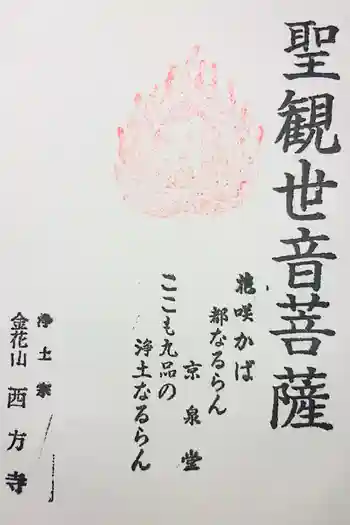 聖観世音菩薩
咲かば
都なるらん
京泉堂
ここも九品の
浄土なるらん
浄土宗
金花山 西方寺